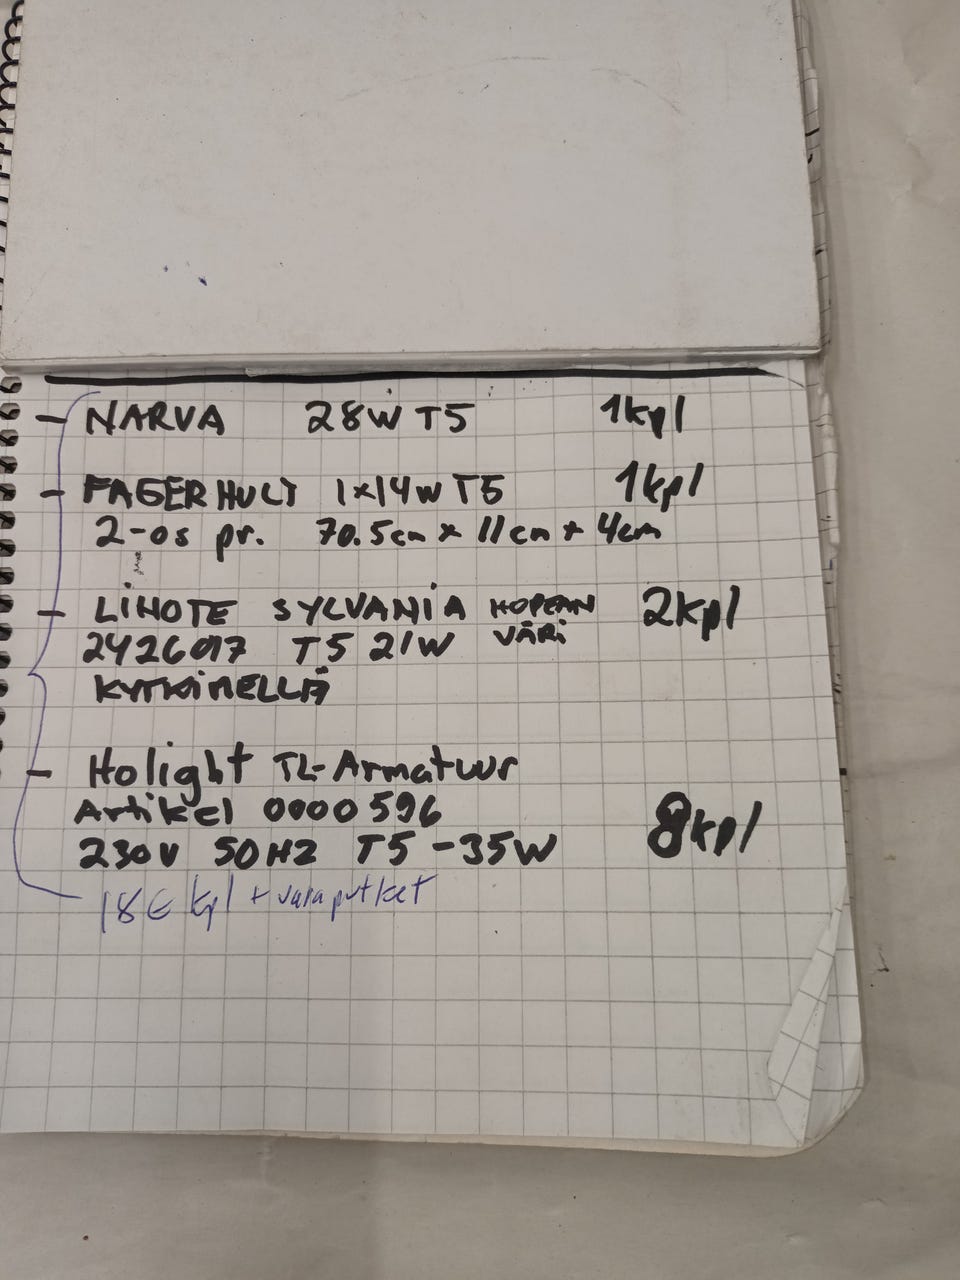 - NARVA 28W T5 1kpl
- FAGERHULT 1x14W T5 1kpl
2-os pr. 70.5cm x 11cm x 4cm
- LINOTE SYLVANIA HOPEAN VÄRI 2kpl
2426017 T5 21W
KYTKIMELLÄ
- Holight TL-Armatuur
Artikel 0000596
230V 50HZ T5 -35W 8kpl
18€ kpl + varaputket